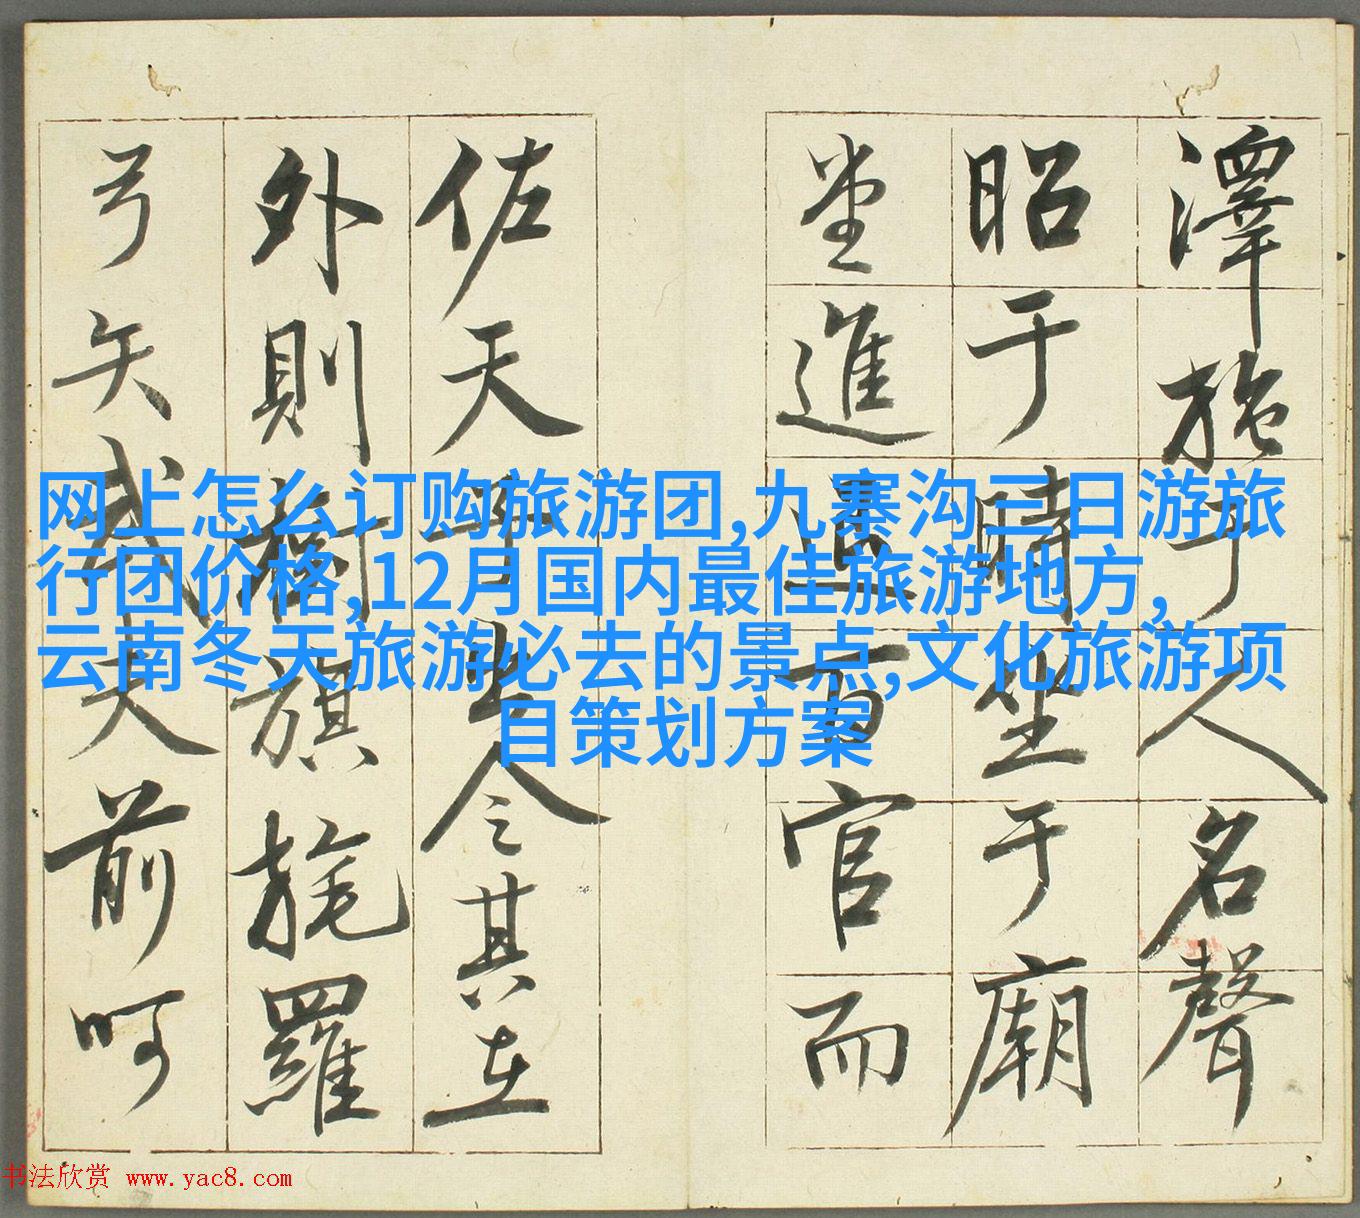 澤施于人名聲
昭于時坐于廟
堂進退百官而
佐天子出令其在
外則樹旗旄羅
弓矢武夫前呵
网上怎么订购旅游团,九寨沟三日游旅
行团价格,12月国内最佳旅游地方,
云南冬天旅游必去的景点,文化旅游项
目策划方案
书法欣赏 www.yac8.com